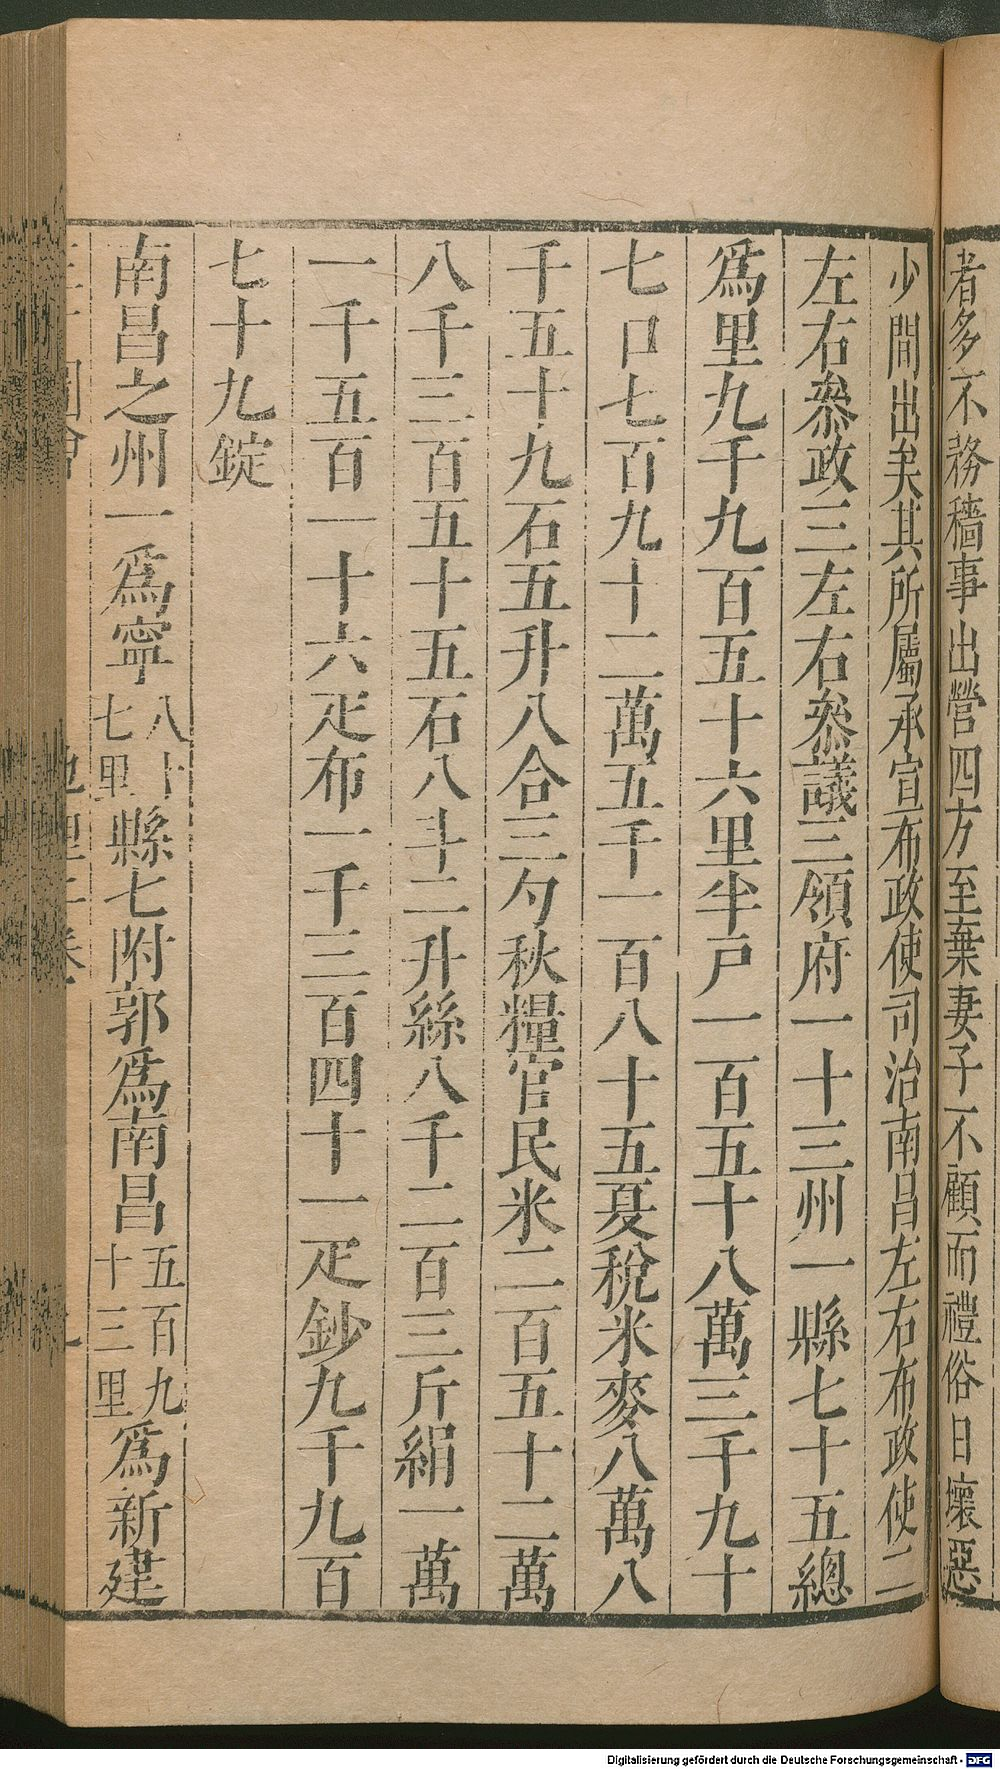 者多不務穡事出營四方至棄妻子不顧而禮俗日壞惡
少間出矣其所屬承宣布政使司治南昌左右布政使二
左右叅政三左右叅議三領府一十三州一縣七十五總
爲里九千九百五十六里半戸一百五十八萬三千九十
七口七百九十二萬五千一百八十五夏稅米麥八萬八
千五十九石五升八合三勺秋糧官民米二百五十二萬
八千三百五十五石八斗二升絲八千二百三斤絹一萬
一千五百一十六疋布一千三百四十一疋鈔九千九百
七十九錠
南昌之州一爲寧八十七里縣七附郭爲南昌五百九十三里爲新建
圖會 地理二卷
Digitalisierung gefördert durch die Deutsche Forschungsgemeinschaft - DFG